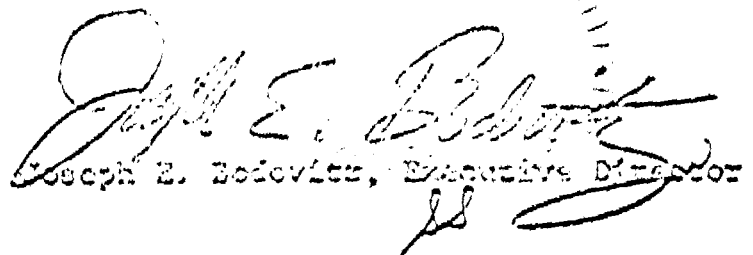 Joseph E. Bodovitz
Joseph E. Bodovitz, Executive Director